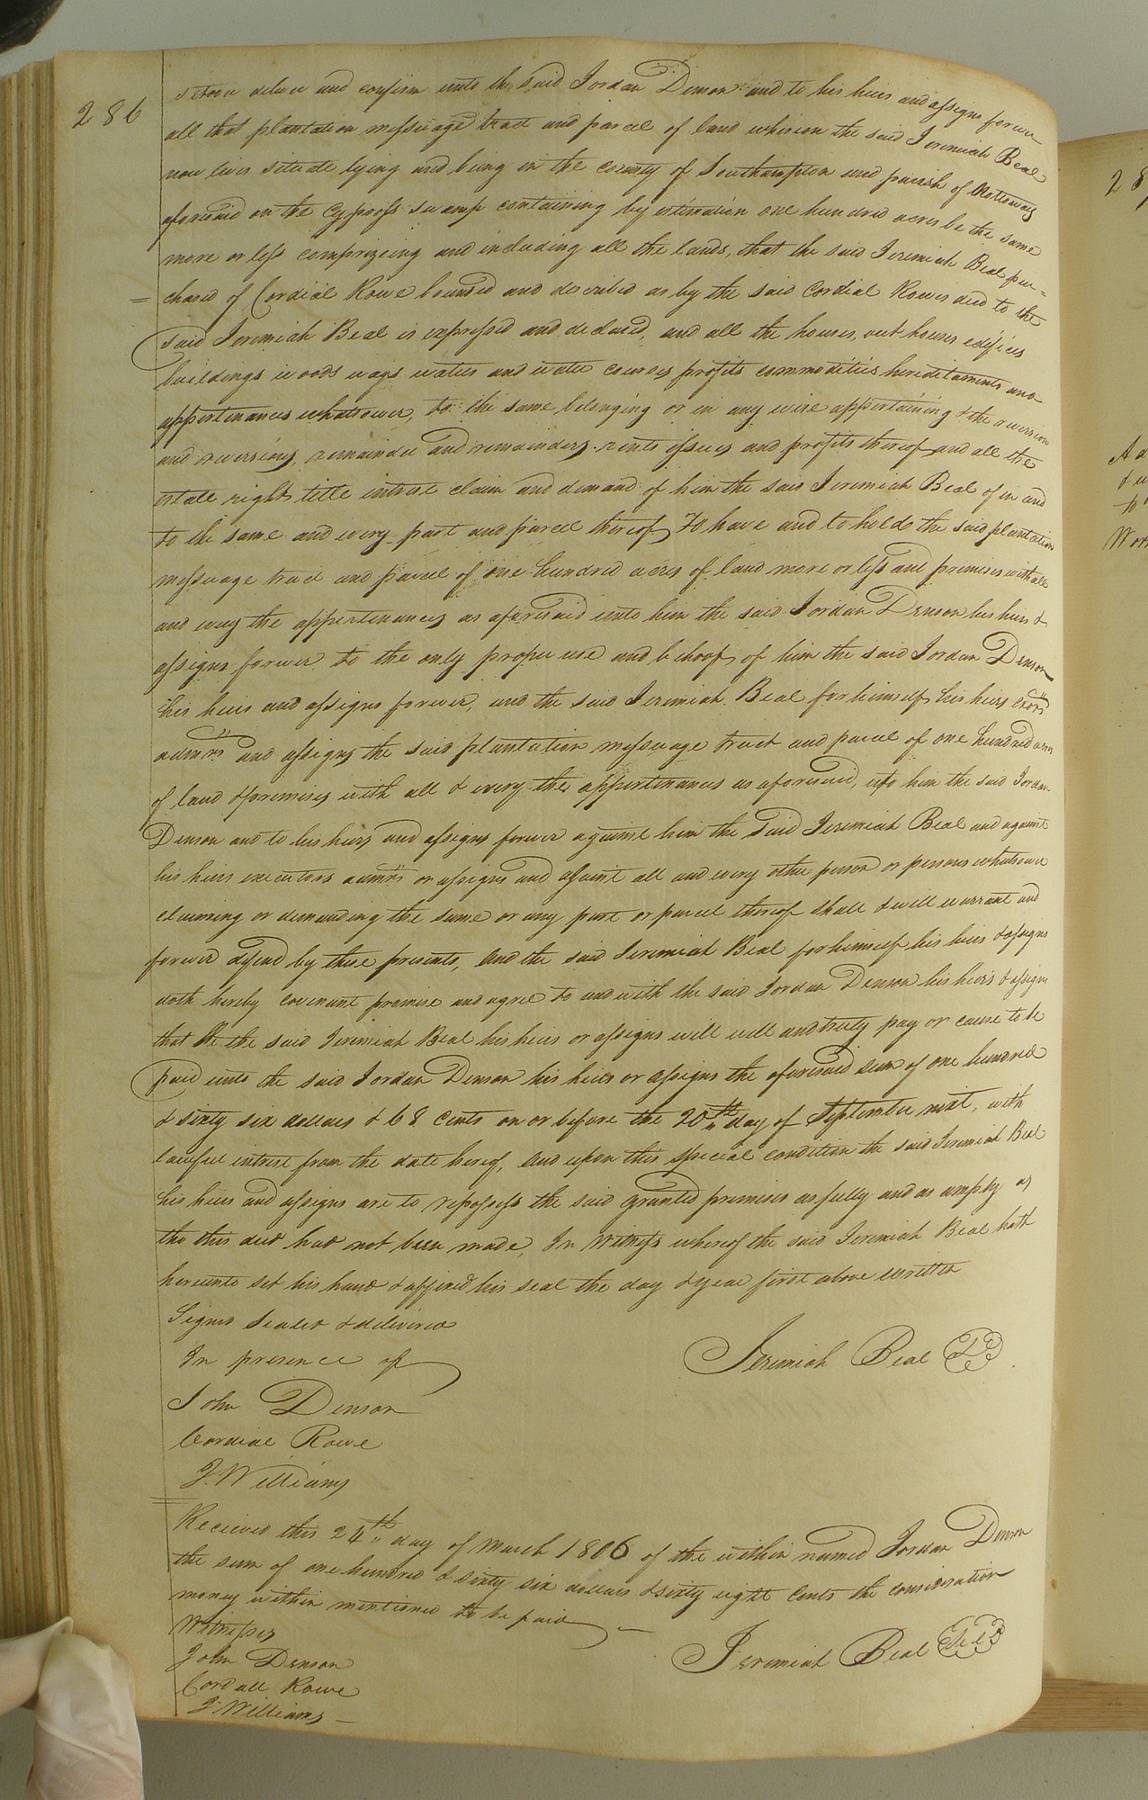 286
deliver and confirm unto the said Jordan Denson and to his heirs and assigns forever
all that plantation messuage tract and parcel of land whereon the said Jeremiah Beal
now lives situate lying and being in the county of Southampton and parish of Nottoway
aforesaid on the Cypress swamp containing by estimation one hundred acres be the same
more or less comprizeing and including all the lands, that the said Jeremiah Beal pur-
chased of Cordial Rowe bounded and described as by the said Cordial Rowes deed to the
said Jeremiah Beal is expressed and declared, and all the houses, out houses edifices
buildings woods ways waters and water courses profits commodities hereditaments and
appertenances whatsoever, to the same belonging or in any wise appertaining & the reversion
and reversions, remainder and remainders rents issues and profits thereof and all the
estate right title interest claim and demand of him the said Jeremiah Beal of in and
to the same and every part and parcel thereof, To have and to hold the said plantation
messuage tract and parcel of one hundred acres of land more or less and premises with all
and every the appertenances as aforesaid unto him the said Jordan Denson his heirs &
assigns forever to the only proper use and behoof of him the said Jordan Denson
his heirs and assigns forever, and the said Jeremiah Beal for himself his heirs exors
admrs and assigns the said plantation messuage tract and parcel of one hundred acres
of land & premises with all & every the appertinances as aforesaid, unto him the said Jordan
Denson and to his heirs and assigns forever against him the said Jeremiah Beal and against
his heirs executors admrs or assigns and against all and every other person or persons whatsoever
claiming or demanding the same or any part or parcel thereof shall & will warrant and
forever defend by these presents, And the said Jeremiah Beal for himself his heirs & assigns
doth hereby covenant promise and agree to and with the said Jordan Denson his heirs & assigns
that the said Jeremiah Beal his heirs or assigns will well and truly pay or cause to be
paid unto the said Jordan Denson his heirs or assigns the aforesaid sum of one hundred
& sixty six dollars & 68 cents on or before the 20th day of September next, with
lawfull intrest from the date hereof, And upon this special condition the said Jeremiah Beal
his heirs and assigns are to repossess the said granted premises as fully and as amply as
tho this deed had not been made, In Witness whereof the said Jeremiah Beal hath
hereunto set his hand & affixed his seal the day & year first above written
Signed sealed & delivered
In presence of
Jeremiah Beal LS
John Denson
Cordial Rowe
J. Williams
Received this 24th day of March 1806 of the within named Jordan Denson
the sum of one hundred & sixty six dollars & sixty eight Cents the consideration
money within mentioned to be paid
Witnesses
Jeremiah Beal Seal
John Denson
Cordall Rowe
J. Williams